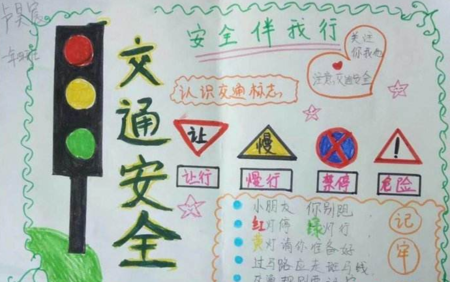 安全伴我行
交通安全
关注
你我他
注意交通安全
认识交通标志
让
慢
让行
慢行
禁停
危险
小朋友 你别跑
红灯停 绿灯行
黄灯请你准备好
过马路应走斑马线
记牢